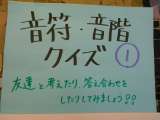 音符・音階
クイズ①
友達と考えたり、答え合わせを
したりしてみましょう!!